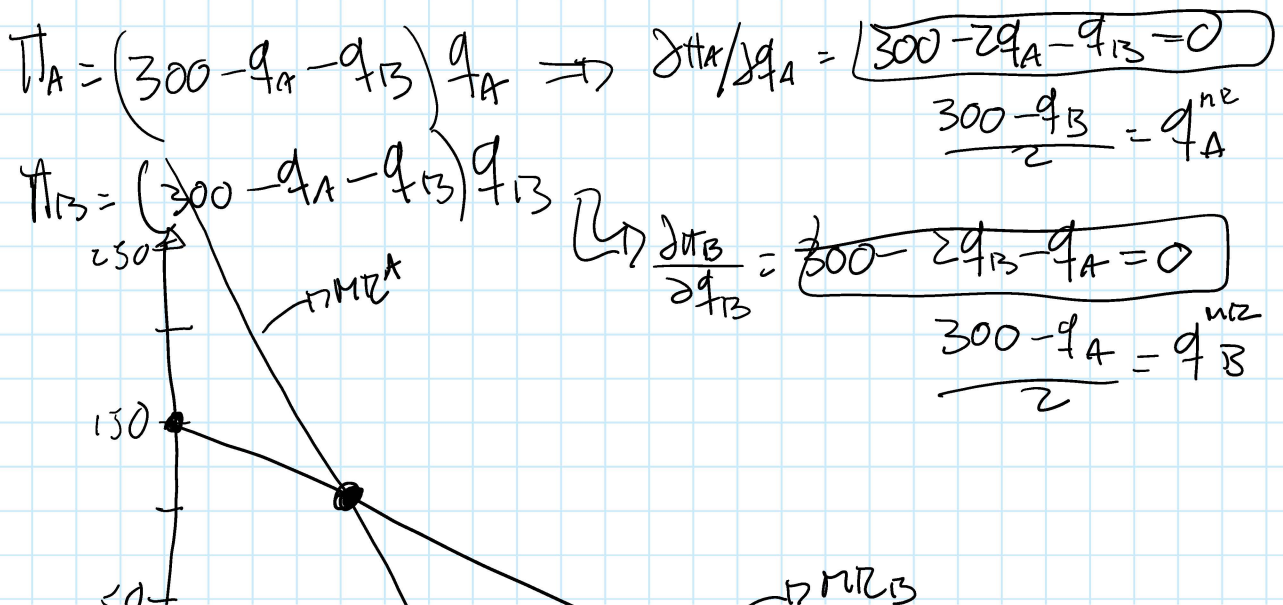 Π_A = (300 − q_A − q_B) q_A ⇒ ∂Π_A/∂q_A = 300 − 2q_A − q_B = 0
(300 − q_B)/2 = q_A^{MR}
Π_B = (300 − q_A − q_B) q_B
↳ ∂Π_B/∂q_B = 300 − 2q_B − q_A = 0
(300 − q_A)/2 = q_B^{MR}
250
MR^A
150
50
MR_B